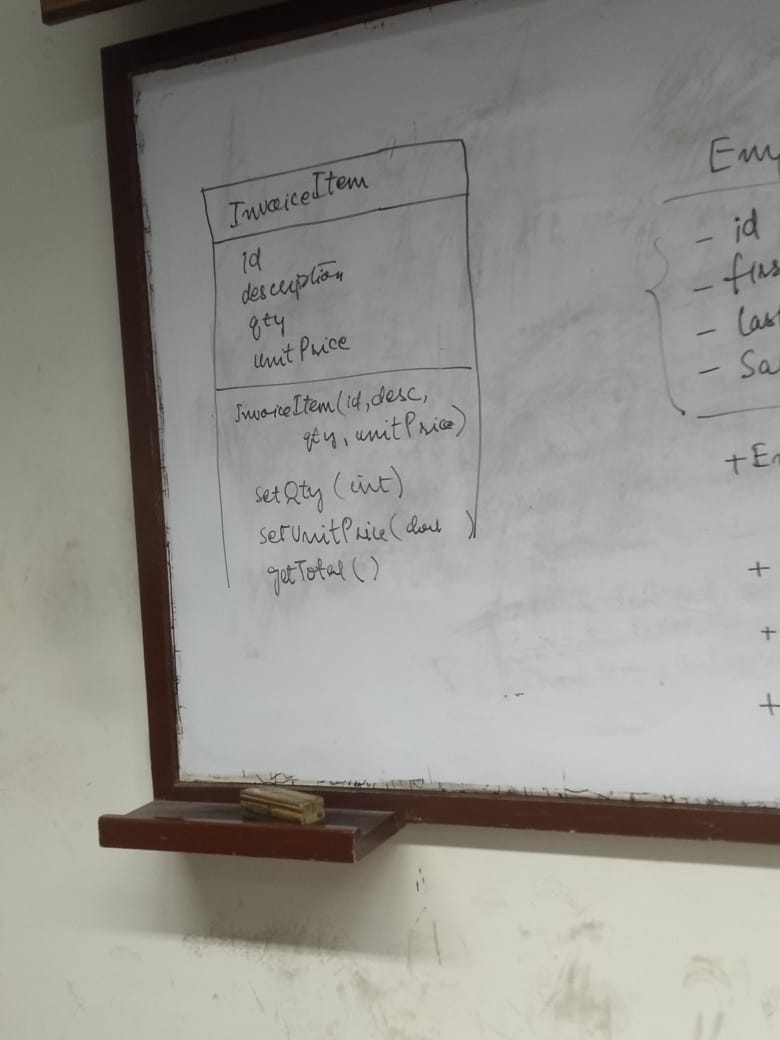 InvoiceItem
id
description
qty
unitPrice
InvoiceItem(id, desc,
qty, unitPrice)
setQty (int)
setUnitPrice( )
getTotal ( )
Emp
- id
- firs
- Las
- Sa
+ En
+
+
+